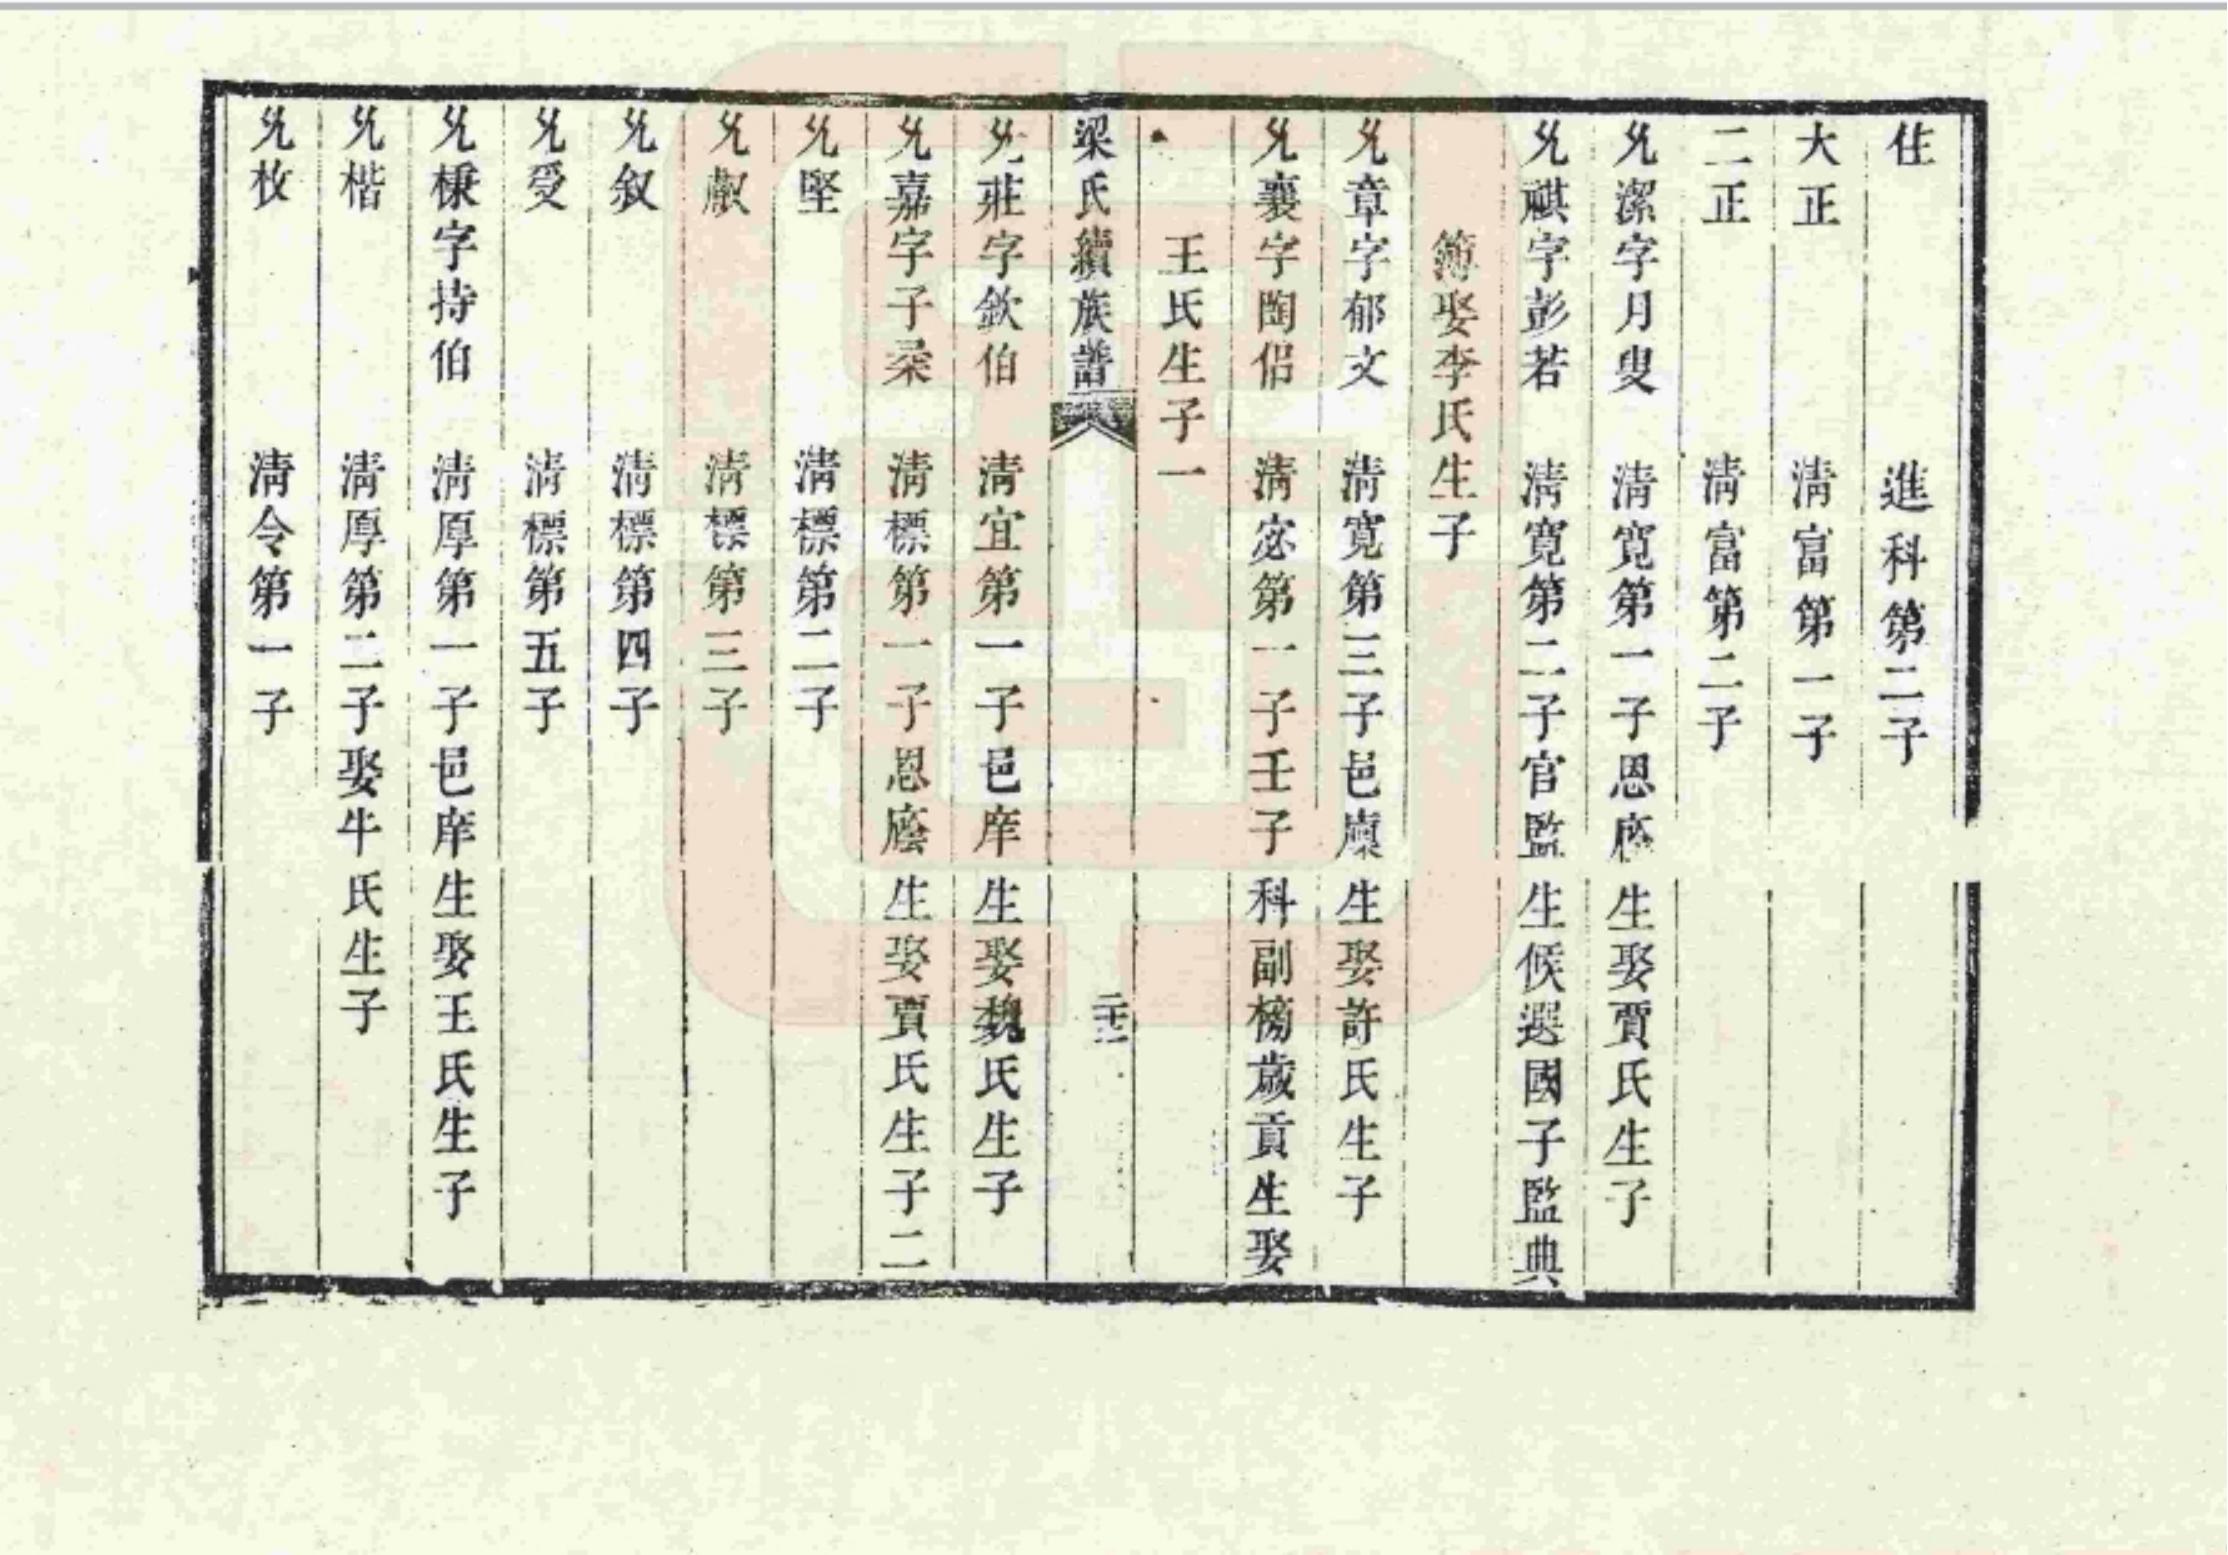 住 進科第二子
大正 清富第一子
二正 清富第二子
允潔字月叟 清寬第一子恩廕生娶賈氏生子
允祺字彭若 清寬第二子官監生候選國子監典
簿娶李氏生子
允章字郁文 清寬第三子邑廩生娶許氏生子
允襄字陶侶 清宓第一子壬子科副榜歲貢生娶
王氏生子一
梁氏續族譜
允莊字欽伯 清宜第一子邑庠生娶魏氏生子
允嘉字子桑 清標第一子恩廕生娶賈氏生子二
允堅 清標第二子
允 清標第三子
允叙 清標第四子
允受 清標第五子
允棅字持伯 清厚第一子邑庠生娶王氏生子
允楷 清厚第二子娶牛氏生子
允枚 清令第一子